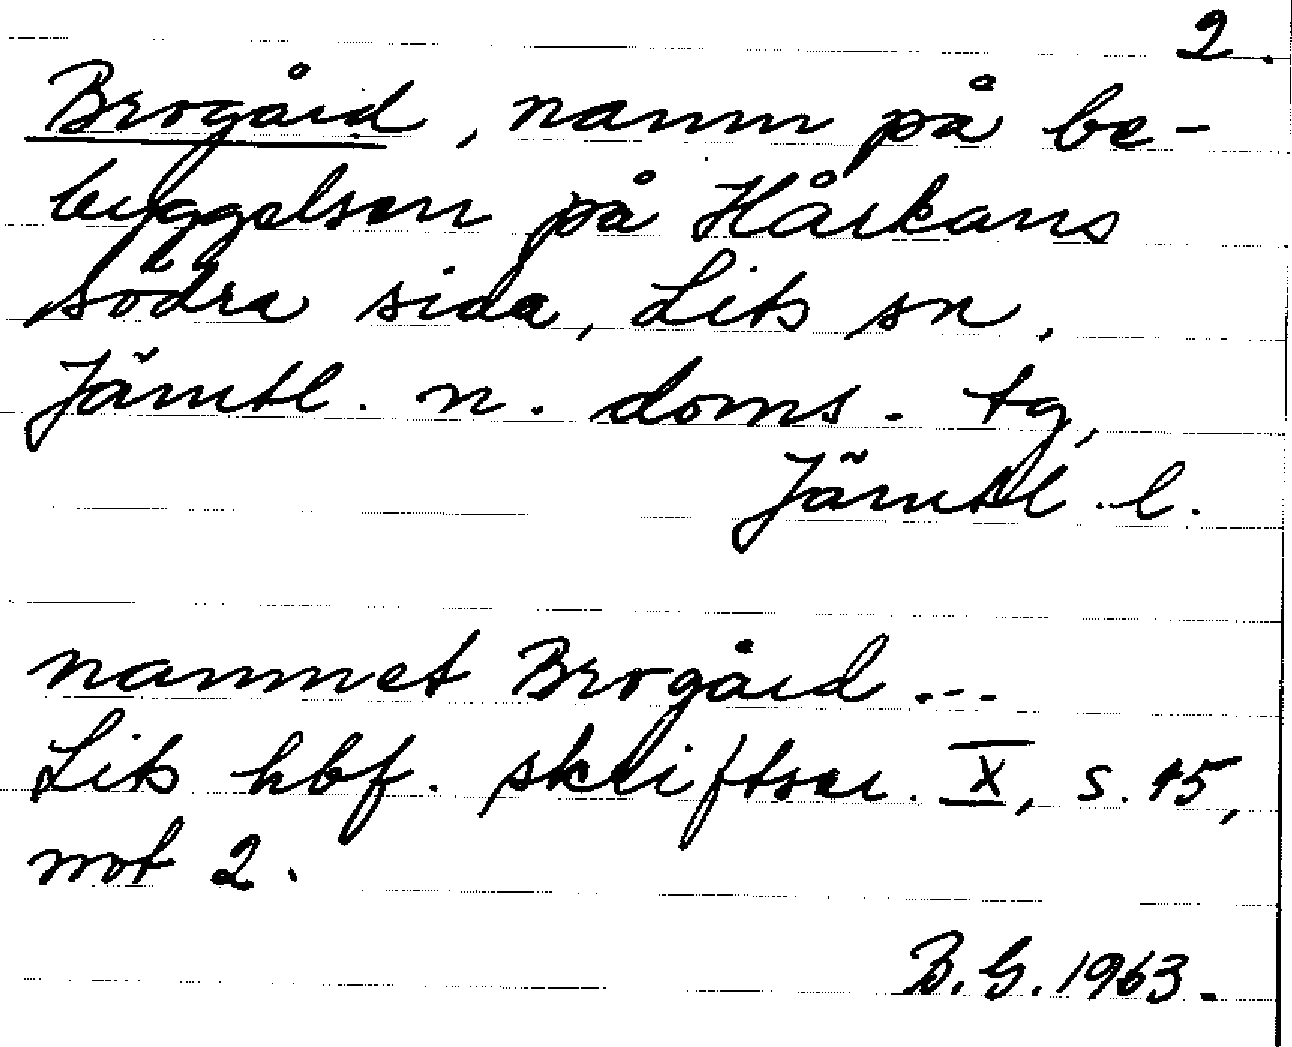 2.
Brogård, namn på be-
byggelsen på Hårkans
södra sida, Lits sn.
Jämtl. n. doms. tg,
Jämtl. l.
namnet Brogård ...
Lits hbf. skriftser. X, s. 15,
not 2.
B.G. 1963.